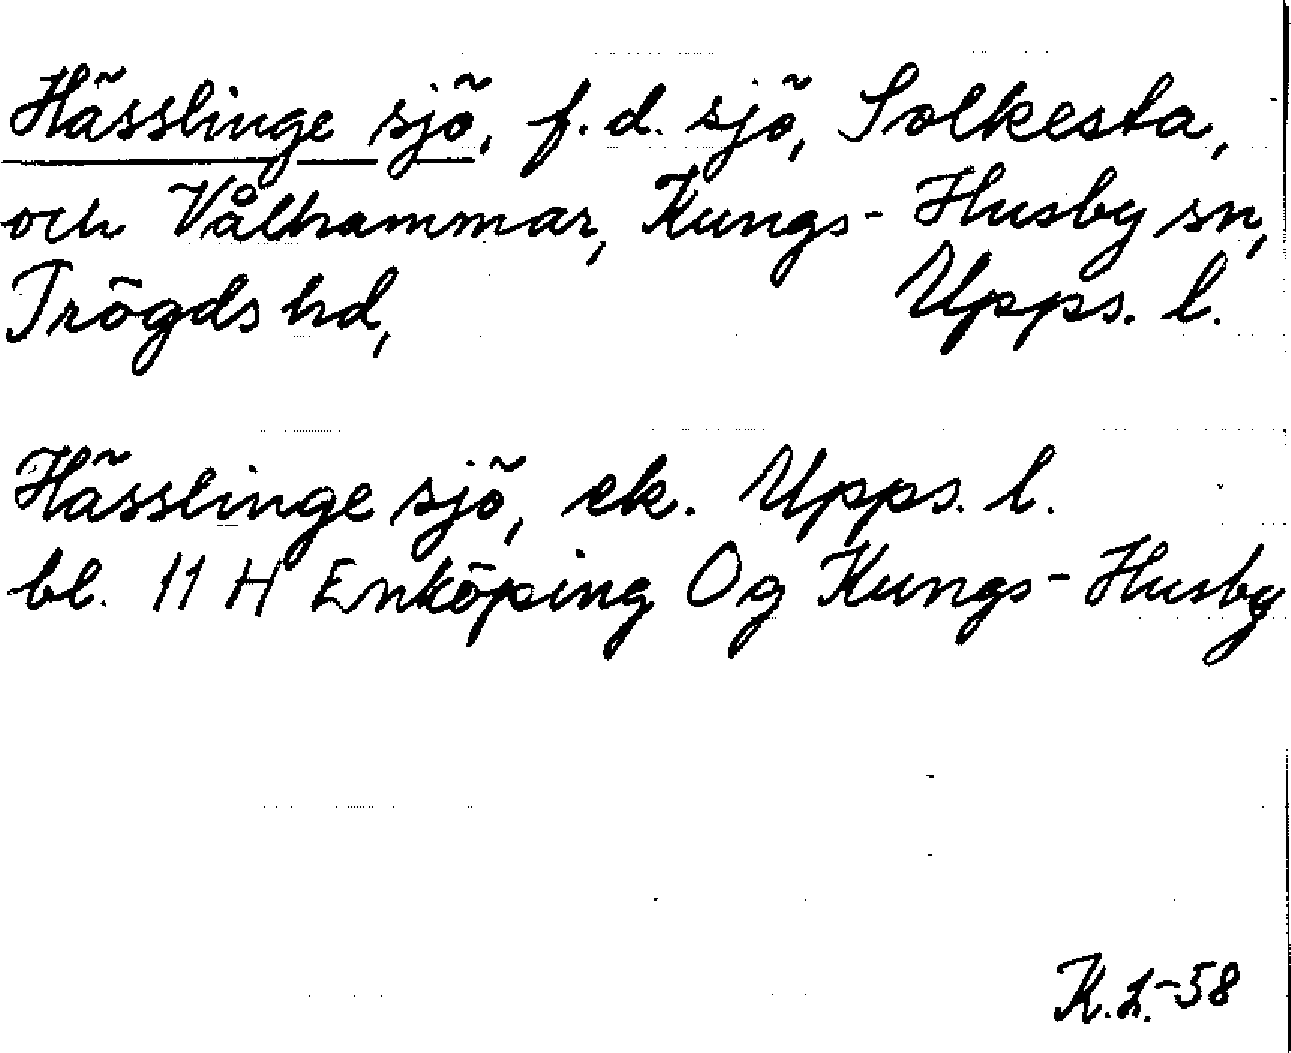 Hässlinge sjö, f.d. sjö, Solkesta,
och Vålhammar, Kungs-Husby sn,
Trögds hd, Upps. l.
Hässlinge sjö, ek. Upps. l.
bl. 11 H Enköping Og Kungs-Husby
K.L.-58